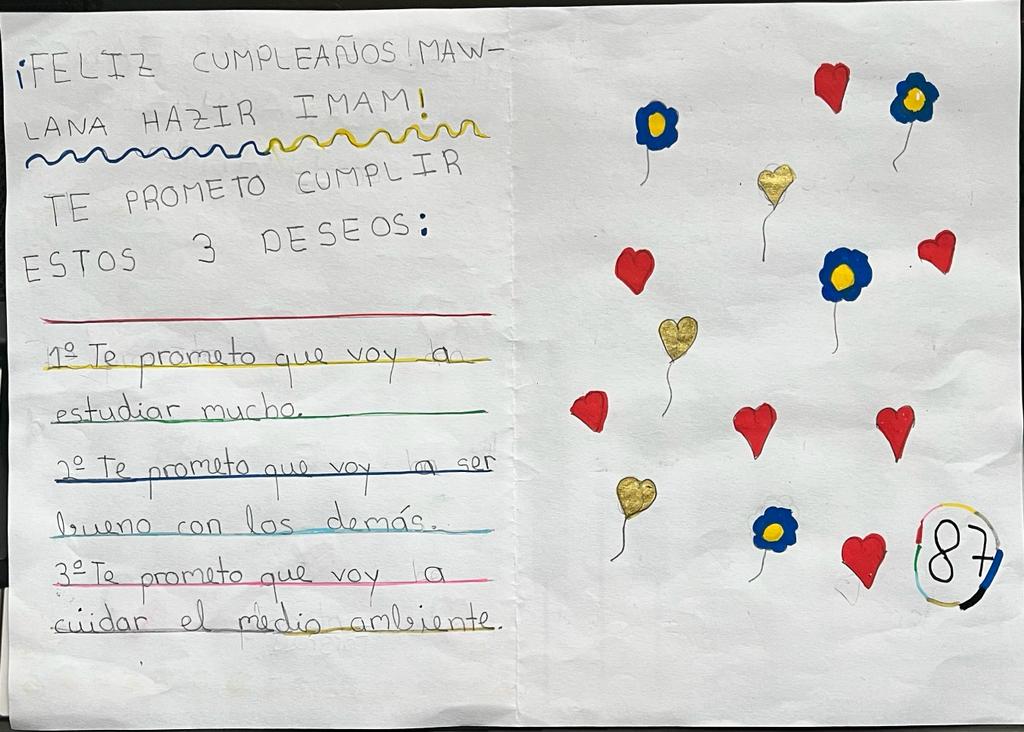 ¡FELIZ CUMPLEAÑOS!MAW-
LANA HAZIR IMAM!
TE PROMETO CUMPLIR
ESTOS 3 DESEOS:
1º Te prometo que voy a
estudiar mucho.
2º Te prometo que voy a ser
bueno con los demás.
3º Te prometo que voy a
cuidar el medio ambiente.
87